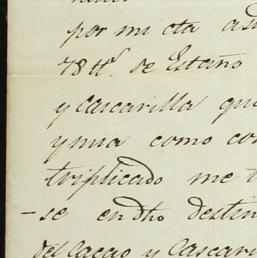 por mi cta a
78 ttˢ. de Estaño
y Cascarilla que
y mia como con
triplicado me
-se en dho destin
del Cacao y Cascari